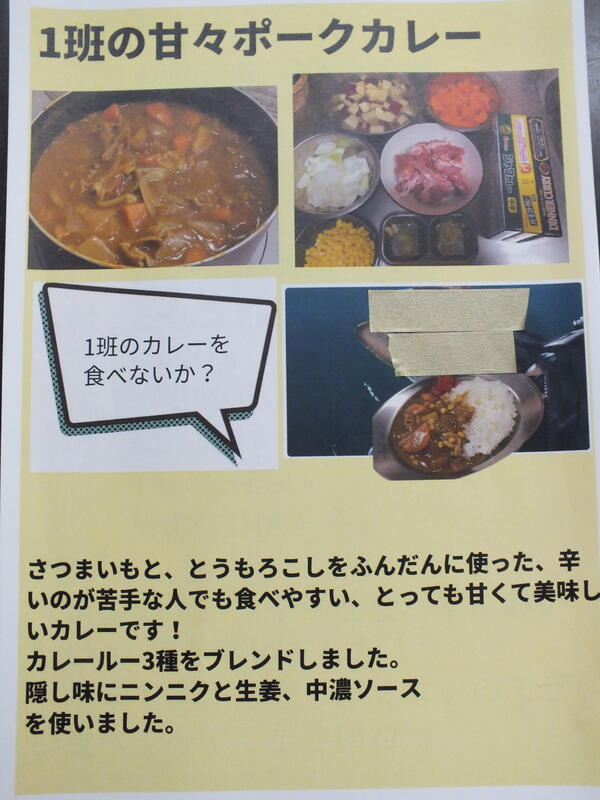 1班の甘々ポークカレー
ジャワカレー
DINNER CURRY
1班のカレーを
食べないか？
さつまいもと、とうもろこしをふんだんに使った、辛
いのが苦手な人でも食べやすい、とっても甘くて美味し
いカレーです！
カレールー3種をブレンドしました。
隠し味にニンニクと生姜、中濃ソース
を使いました。